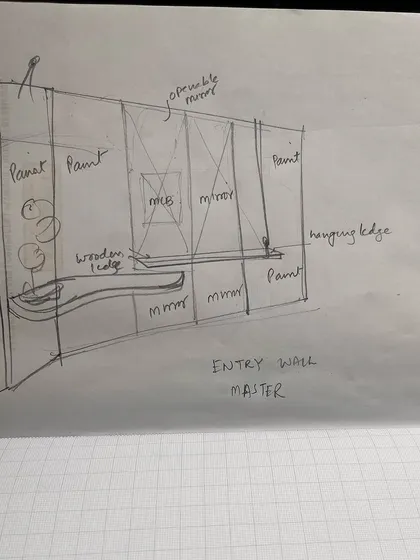 openable
mirror
Paint
Paint
Paint
MCB
mirror
hanging ledge
wooden
ledge
Paint
mirror
mirror
ENTRY WALL
MASTER